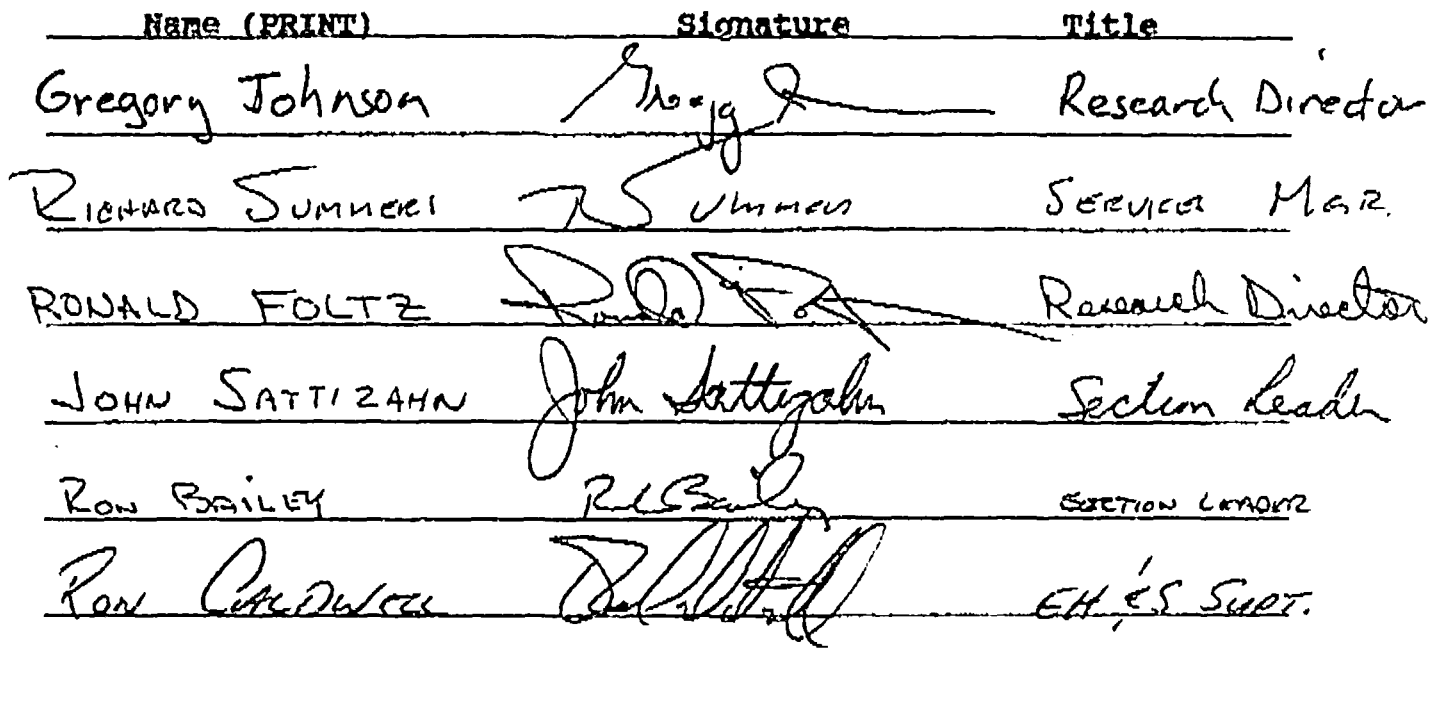 Name (PRINT) Signature Title
Gregory Johnson Gregg J Research Director
RICHARD SUMMERS R Summers SERVICES MGR.
RONALD FOLTZ Ronald Foltz Research Director
JOHN SATTIZAHN John Sattizahn Section Leader
RON BAILEY Ron Bailey SECTION LEADER
RON CALDWELL EH&S SUPT.